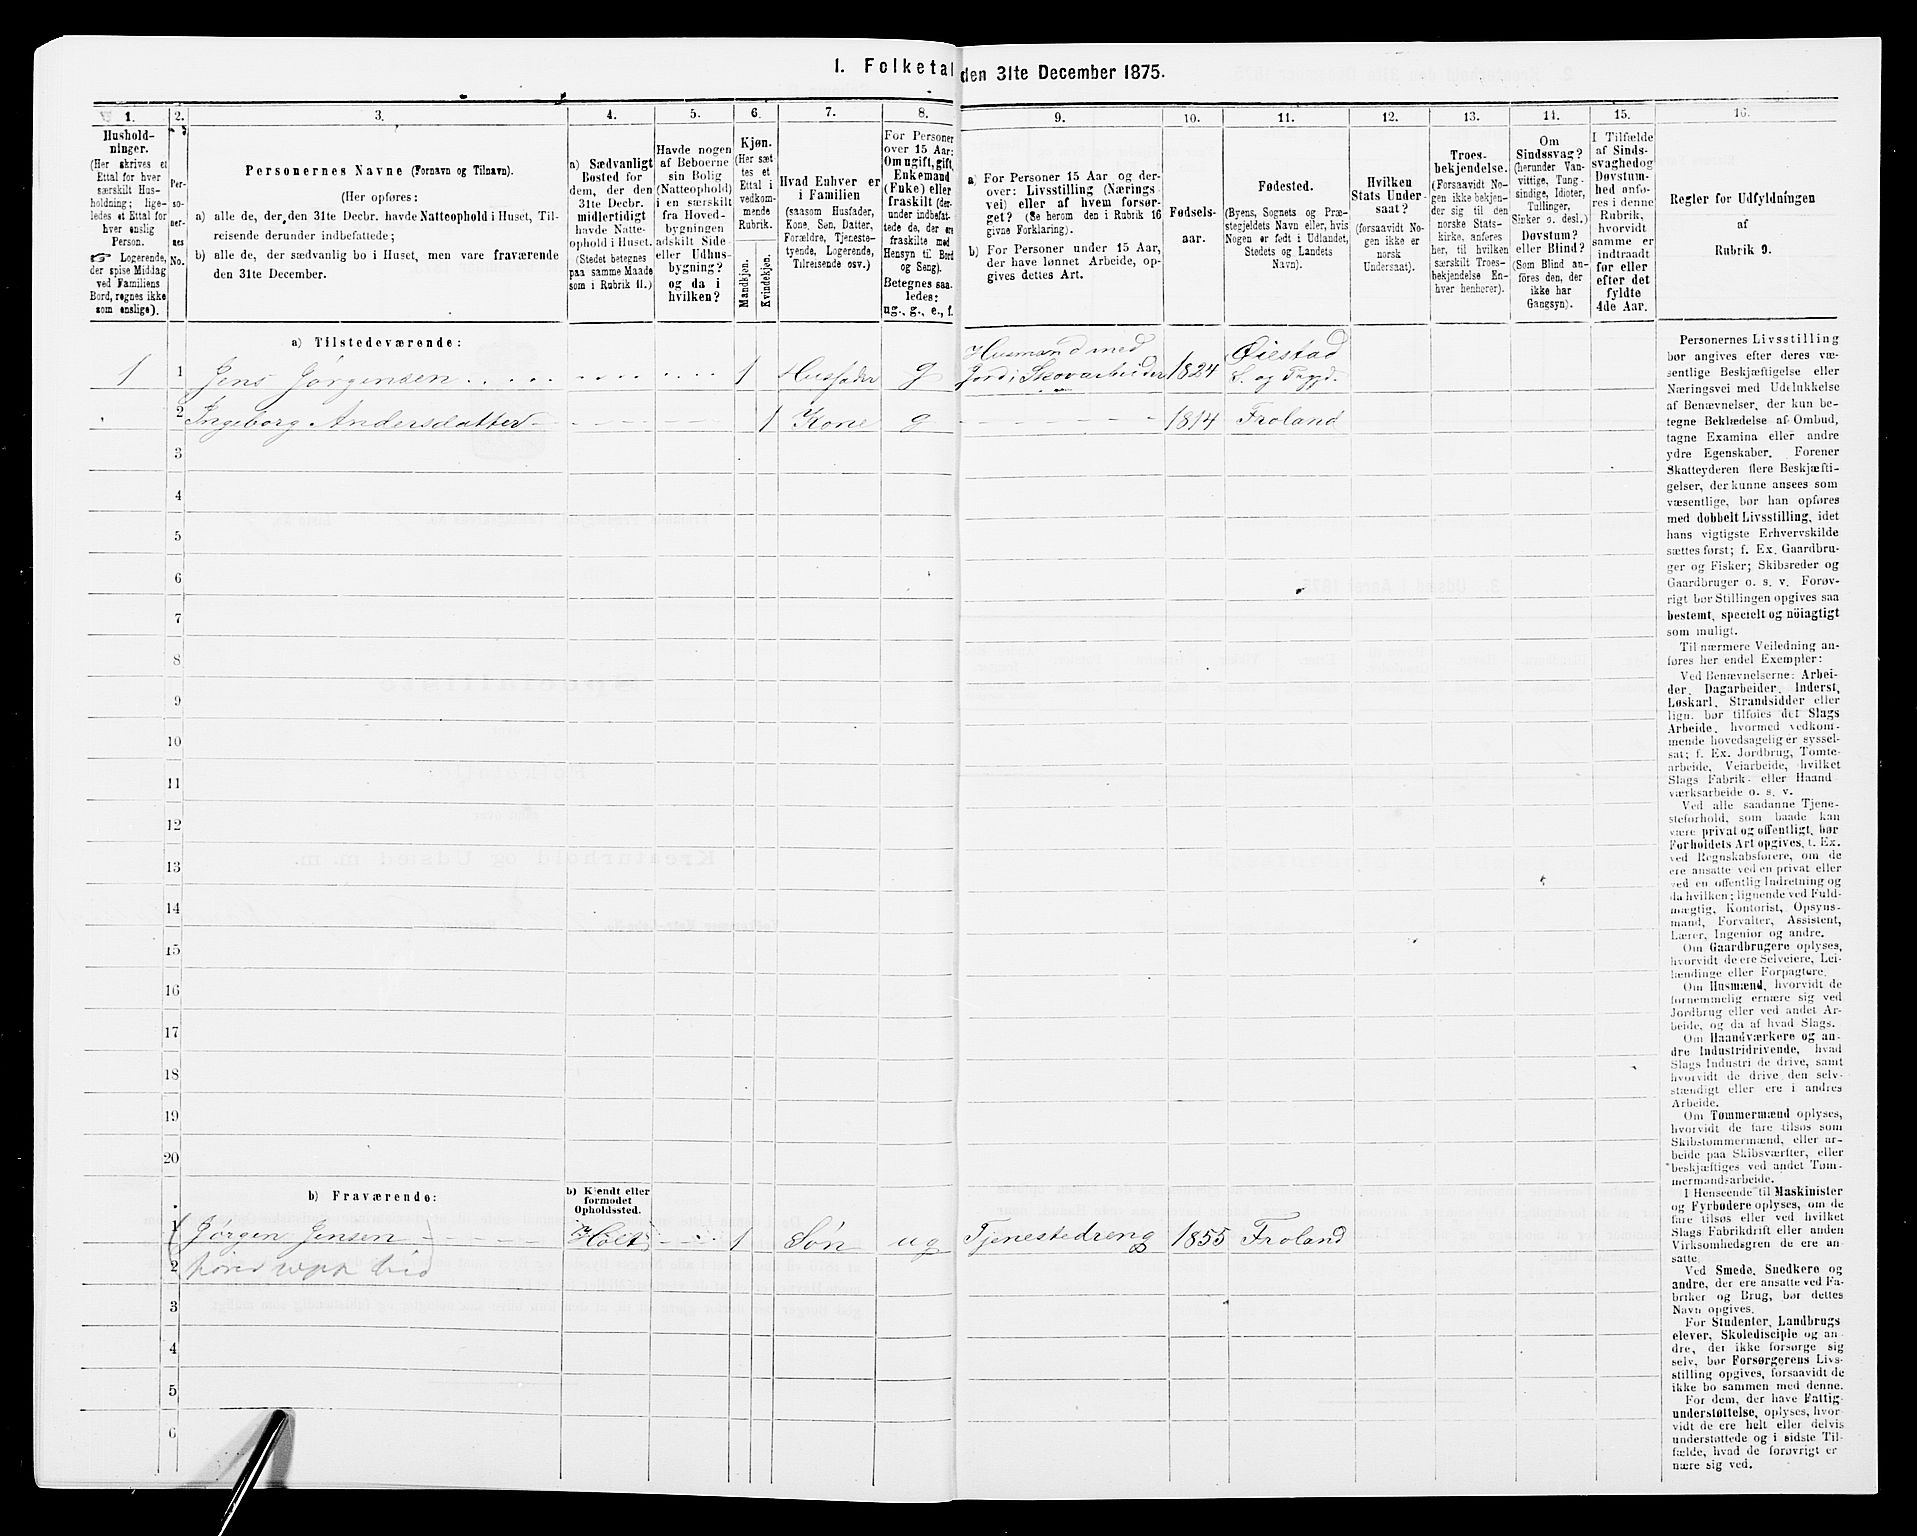 1. Folketal den 31te December 1875.
1.
2.
3.
4.
5.
6.
7.
8.
9.
10.
11.
12.
13.
14.
15.
16.
Hushold-
ninger.
(Her skrives et
Ettal for hver
særskilt Hus-
holdning; lige-
ledes et Ettal for
hver enslig
Person.
☞ Logerende,
der spise Middag
ved Familiens
Bord, regnes ikke
som enslige).
Per-
so-
ner-
nes
No.
Personernes Navne (Fornavn og Tilnavn).
(Her opføres:
a) alle de, der den 31te Decbr. havde Natteophold i Huset, Til-
reisende derunder indbefattede;
b) alle de, der sædvanlig bo i Huset, men vare fraværende
den 31te December.
a) Sædvanligt
Bosted for
dem, der den
31te Decbr.
midlertidigt
havde Natte-
ophold i Huset.
(Stedet betegnes
paa samme Maade
som i Rubrik 11.)
Havde nogen
af Beboerne
sin Bolig
(Natteophold)
i en særskilt
fra Hoved-
bygningen
adskilt Side-
eller Udhus-
bygning?
og da i
hvilken?
Kjøn.
(Her sæt-
tes et
Ettal i
vedkom-
mende
Rubrik.
Mandkjøn.
Kvindekjøn.
Hvad Enhver er
i Familien
(saasom Husfader,
Kone, Søn, Datter,
Forældre, Tjeneste-
tyende, Logerende,
Tilreisende osv.)
For Personer
over 15 Aar:
Om ugift, gift,
Enkemand
(Enke) eller
fraskilt (der-
under indbefat-
tede de, der ere
fraskilte med
Hensyn til Bord
og Seng).
Betegnes saa-
ledes:
ug., g., e., f.
a) For Personer 15 Aar og der-
over: Livsstilling (Nærings-
vei) eller af hvem forsør-
get? (Se herom den i Rubrik 16
givne Forklaring).
b) For Personer under 15 Aar,
der have lønnet Arbeide, op-
gives dettes Art.
Fødsels-
aar.
Fødested.
(Byens, Sognets og Præ-
stegjeldets Navn eller, hvis
Nogen er født i Udlandet,
Stedets og Landets
Navn).
Hvilken
Stats Under-
saat?
(forsaavidt No-
gen ikke er
norsk
Undersaat).
Troes-
bekjendelse.
(Forsaavidt No-
gen ikke bekjen-
der sig til den
norske Stats-
kirke, anføres
her, til hvilken
særskilt Troes-
bekjendelse En-
hver henhører).
Om
Sindssvag?
(herunder Van-
vittige, Tung-
sindige, Idioter,
Tullinger,
Sinker o. desl.)
Døvstum?
eller Blind?
(Som Blind an-
føres den, der
ikke har
Gangsyn).
I Tilfælde
af Sinds-
svaghed og
Døvstum-
hed anfø-
res i denne
Rubrik,
hvorvidt
samme er
indtraadt
før eller
efter det
fyldte
4de Aar.
Regler for Udfyldningen
af
Rubrik 9.
a) Tilstedeværende:
1 1 Jens Jørgensen 1 Husfader g Husmand med
Jord, Skovarbeider 1824 Øiestad
S. og Prgjd.
2 Ingeborg Andersdatter 1 Kone g 1814 Froland
3
4
5
6
7
8
9
10
11
12
13
14
15
16
17
18
19
20
b) Fraværende:
b) Kjendt eller
formodet
Opholdssted.
1 Jørgen Jensen Holt 1 Søn ug Tjenestedreng 1855 Froland
2
3
4
5
6
Personernes Livsstilling
bør angives efter deres væ-
sentlige Beskjæftigelse eller
Næringsvei med Udelukkelse
af Benævnelser, der kun be-
tegne Beklædelse af Ombud,
tagne Examina eller andre
ydre Egenskaber. Forener
Skatteyderen flere Beskjæfti-
gelser, der kunne ansees som
væsentlige, bør han opføres
med dobbelt Livsstilling, idet
hans vigtigste Erhvervskilde
sættes først; f. Ex. Gaardbru-
ger og Fisker; Skibsreder og
Gaardbruger o. s. v. Forøv-
rigt bør Stillingen opgives saa
bestemt, specielt og nöiagtigt
som muligt.
Til nærmere Veiledning an-
føres her endel Exempler:
Ved Benævnelserne: Arbei-
der, Dagarbeider, Inderst,
Løskarl, Strandsidder eller
lign. bør tilføies det Slags
Arbeide, hvormed vedkom-
mende hovedsagelig er syssel-
sat; f. Ex. Jordbrug, Tomte-
arbeide, Veiarbeide, hvilket
Slags Fabrik- eller Haand-
værksarbeide o. s. v.
Ved alle saadanne Tjene-
steforhold, som baade kan
være privat og offentligt, bør
Forholdets Art opgives, f. Ex.
ved Regnskabsførere, om de
ere ansatte ved en privat eller
ved en offentlig Indretning og
da hvilken; lignende ved Fuld-
mægtig, Kontorist, Opsyns-
mand, Forvalter, Assistent,
Lærer, Ingeniør og andre.
Om Gaardbrugere oplyses,
hvorvidt de ere Selveiere, Lei-
lændinge eller Forpagtere.
Om Husmænd, hvorvidt de
fornemmelig ernære sig ved
Jordbrug eller ved andet Ar-
beide, og da af hvad Slags.
Om Haandværkere og an-
dre Industridrivende, hvad
Slags Industri de drive, samt
hvorvidt de drive den selv-
stændigt eller ere i andres
Arbeide.
Om Tømmermænd oplyses,
hvorvidt de fare tilsøs som
Skibstømmermænd, eller ar-
beide paa Skibsværfter, eller
beskjæftiges ved andet Tøm-
mermandsarbeide.
I Henseende til Maskinister
og Fyrbødere oplyses, om de
fare tilsøs eller ved hvilket
Slags Fabrikdrift eller anden
Virksomhedsgren de ere an-
satte.
Ved Smede, Snedkere og
andre, der ere ansatte ved Fa-
briker og Brug, bør dettes
Navn opgives.
For Studenter, Landbrugs-
elever, Skoledisciple og an-
dre, der ikke forsørge sig
selv, bør Forsørgerens Livs-
stilling opgives, forsaavidt de
ikke bo sammen med denne.
For dem, der have Fattig-
understøttelse, oplyses, hvor-
vidt de ere helt eller delvis
understøttede og i sidste Til-
fælde, hvad de forøvrigt er-
nære sig ved.